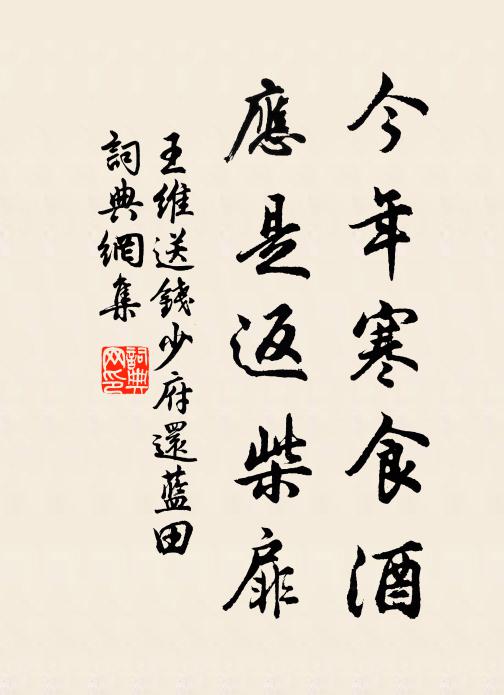 今年寒食酒
應是返柴扉
王維送錢少府還藍田
詞典網集
詞典网印